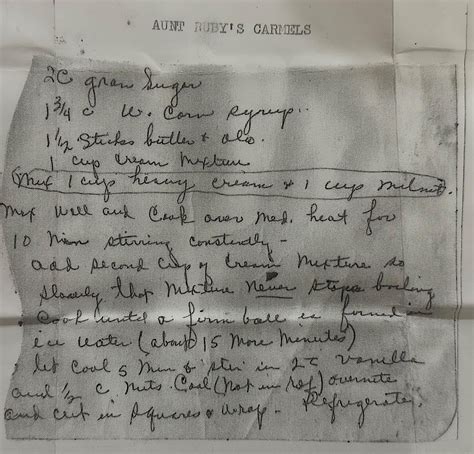 AUNT RUBY'S CARMELS
2C gran Sugar
1 3/4 c W. Corn Syrup.
1 1/2 Sticks butter & olo.
1 cup Cream Mixture
(Mix 1 cup heavy cream & 1 cup Milnut)
Mix Well and Cook over Med. heat for
10 Min stirring constantly -
add second cup of Cream Mixture so
slowly that Mixture Never stops boiling
Cook until a firm ball is formed in
ice water (about 15 More Minutes)
let cool 5 Min & stir in 2t Vanilla
and 1/2 c Nuts. Cool (not in ref) overnite
and cut in squares & wrap. Refrigerate.